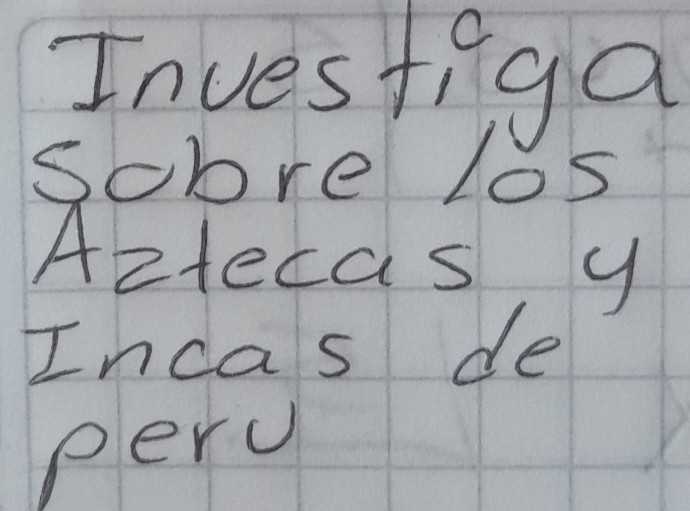 Investiga
Sobre los
Aztecas y
Incas de
peru